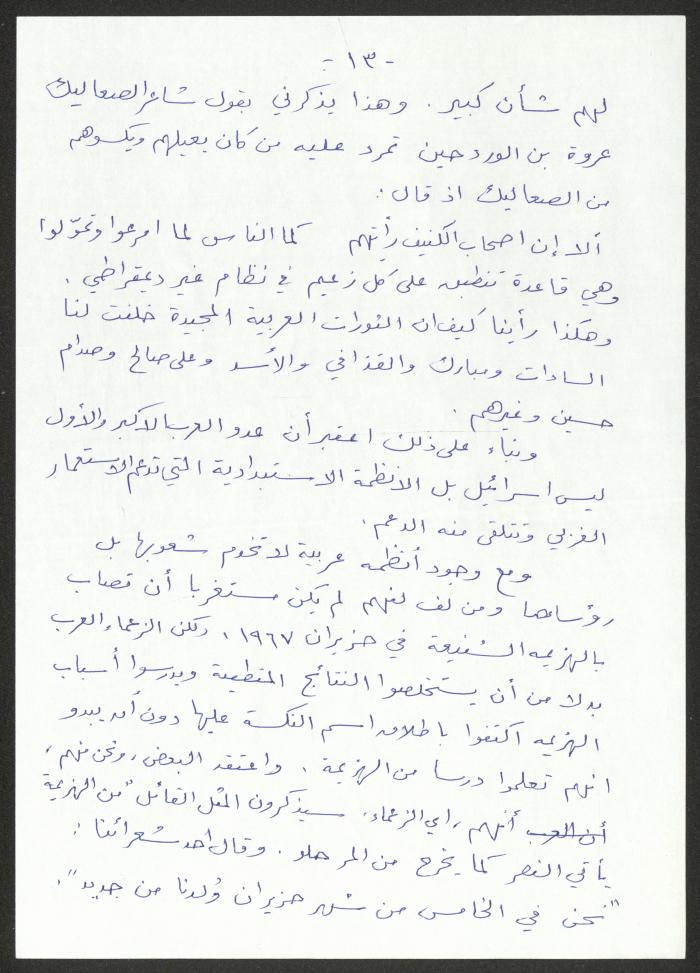 - ١٣ -
لهم شأن كبير. وهذا يذكرني بقول شاعر الصعاليك
عروة بن الورد حين تمرد عليه من كان يعيلهم ويكسوهم
من الصعاليك اذ قال:
ألا إن اصحاب الكنيف رأيتهم كما الناس لما امرعوا وتموّلوا
وهي قاعدة تنطبق على كل زعيم في نظام غير ديمقراطي.
وهكذا رأينا كيف ان الثورات العربية المجيدة خلفت لنا
السادات ومبارك والقذافي والأسد وعلي صالح وصدام
حسين وغيرهم.
وبناء على ذلك اعتبر أن عدو العرب الاكبر والأول
ليس اسرائيل بل الانظمة الاستبدادية التي تدعم الاستعمار
الغربي وتتلقى منه الدعم.
ومع وجود أنظمه عربية لا تخدم شعوبها بل
رؤساءها ومن لف لفهم لم يكن مستغربا أن تصاب
بالهزيمه الشنيعة في حزيران ١٩٦٧، ولكن الزعماء العرب
بدلا من أن يستخلصوا النتائج المنطقية ويدرسوا أسباب
الهزيمه اكتفوا باطلاق اسم النكسة عليها دون أن يبدو
انهم تعلموا درسا من الهزيمة. واعتقد البعض، ونحن منهم،
أن العرب أنهم، اي الزعماء، سيذكرون المثل القائل "من الهزيمة
يأتي النصر كما يخرج من المر حلو. وقال احد شعرائنا:
"نحن في الخامس من شهر حزيران وُلدنا من جديد".